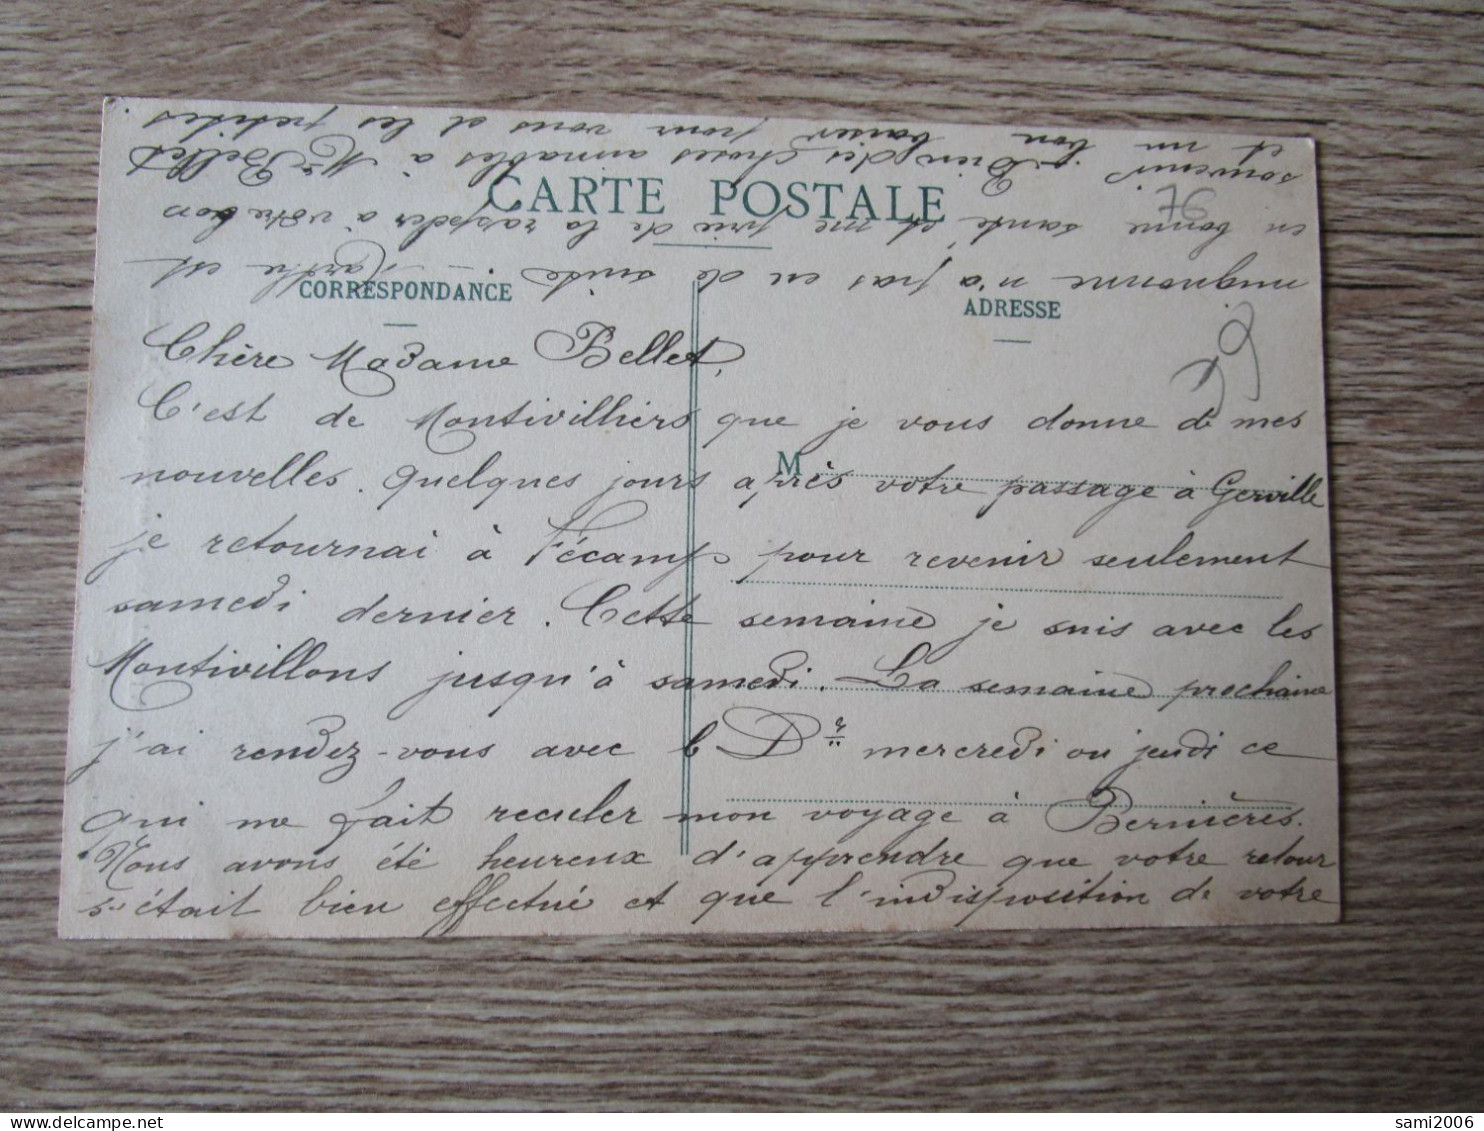 CARTE POSTALE
CORRESPONDANCE
ADRESSE
M
Chère Madame Bellet,
C'est de Montivilliers que je vous donne de mes
nouvelles. Quelques jours après votre passage à Gerville
je retournai à Fécamp pour revenir seulement
samedi dernier. Cette semaine je suis avec les
Montivillons jusqu'à samedi. La semaine prochaine
j'ai rendez-vous avec le Dr mercredi ou jeudi ce
qui me fait reculer mon voyage à Bernières.
Nous avons été heureux d'apprendre que votre retour
s'était bien effectué et que l'indisposition de votre
mignonne n'a pas eu de suite Marthe est
en bonne santé et me prie de la rappeler à votre bon
souvenir. Bien des choses aimables à Mr Bellet
et un bon baiser pour vous et les petites
76
29
sami2006
delcampe.net